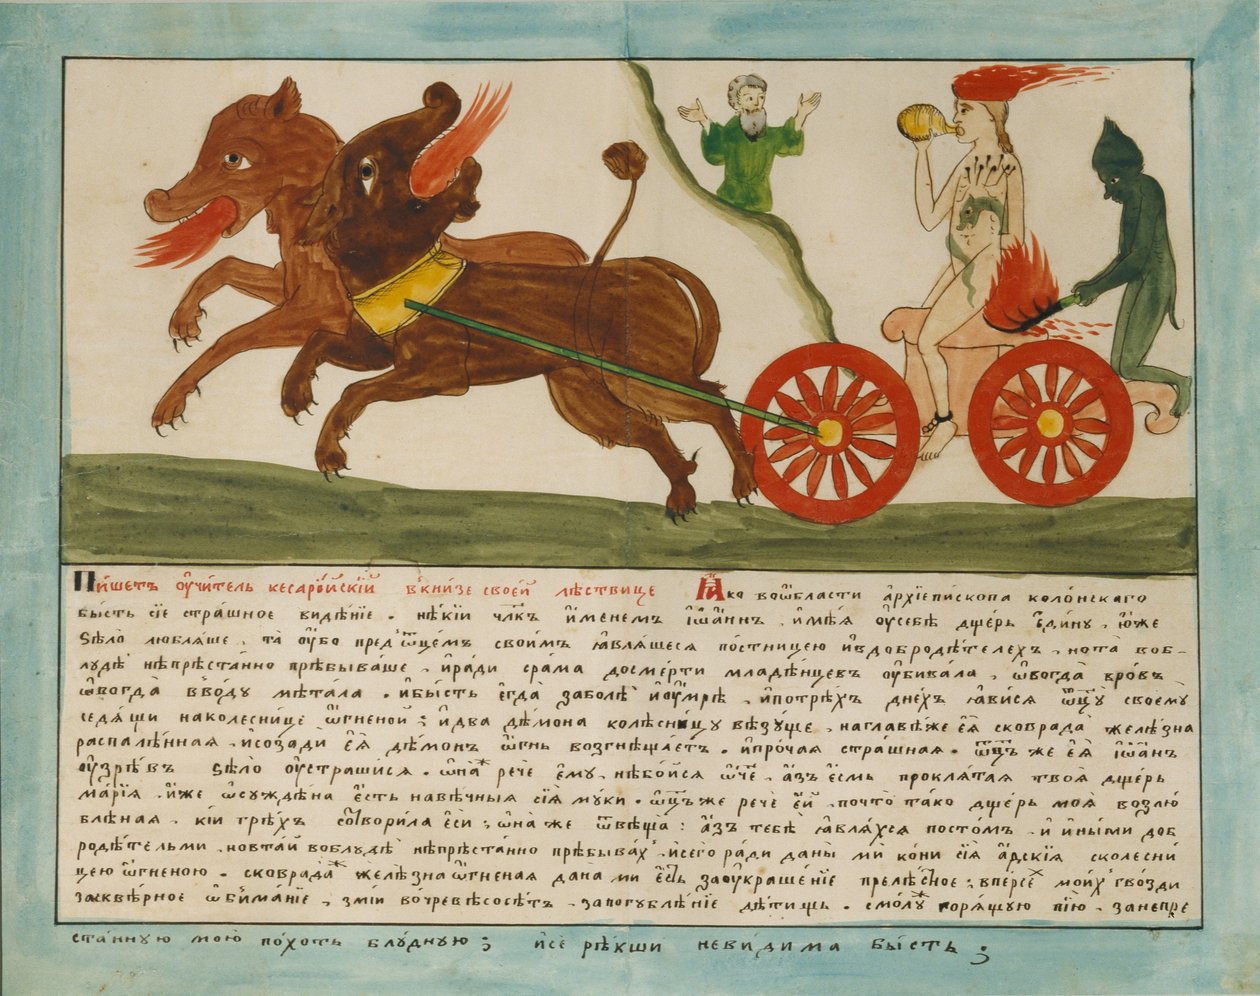 Пи́шетъ ᲂу҆чи́тель кесарі́йскїй в кни́зе своей лѣствице Ꙗ҆́ко во ѡ҆́бласти а҆рхїепі́скопа коло́нскаго
бы́сть сїе стра́шное виде́нїе . нѣ́кїи чл҃къ и҆́менемъ і҆ѡа́ннъ . и҆мѣ́ѧ ᲂу҆себѐ дще́рь є҆ди́ну . ю҆́же
ѕѣло̀ люблѧ́ше . та̀ ᲂу҆́бо пред̾ ѻ҆тце́мъ свои́мъ ꙗ҆влѧ́шесѧ по́стницею и҆ в добродѣ́телехъ . но та̀ воб-
лудѐ непреста́нно пребыва́ше . и҆ ра́ди сра́ма до сме́рти младе́нцевъ ᲂу҆бива́ла , ѡ҆вогда̀ в ро́въ
ѡ҆вогда̀ в во́ду мета́ла . и҆ бы́сть є҆гда̀ заболѐ и҆ ᲂу҆́мре , и҆ по трех̾ дне́хъ ꙗ҆ви́сѧ ѻ҆ц҃у̀ своемꙋ̀
седѧ́щи на колесни́це ѻ҆́гненой ; и҆ два̀ де́мона колесни́цꙋ везꙋ́ще , на главе́же є҆ѧ̀ сковрада̀ желѣ́зна
распале́нная , и҆ созадѝ є҆ѧ̀ де́монъ ѻ҆́гнь возгнеща́етъ . и҆ про́чая стра́шная . ѻ҆ц҃ъ же є҆ѧ̀ і҆ѡа́нъ
ᲂу҆зре́въ ѕѣло̀ ᲂу҆страши́сѧ . ѻ҆на́ж речѐ є҆мꙋ̀ . не бо́йсѧ ѻ҆́ч҃е , а҆́зъ є҆́смь проклѧ́таѧ твоѧ̀ дще́рь
марі́ѧ . и҆́же ѡ҆сужде́на є҆́сть на ве́чныѧ сїѧ̀ мꙋ́ки . ѻ҆ц҃ъ же речѐ є҆́й , почто̀ та́ко дще́рь моѧ̀ возлю́
бленаѧ . кі́й гре́хъ сотвори́ла є҆сѝ ; ѻ҆на́ же ѿвеща̀ : а҆́зъ тебѐ ꙗ҆влѧ́хсѧ посто́мъ . и҆ и҆ны́ми доб
роде́тельми . но в та́й во блудѐ непреста́нно пребыва́х̾ , и҆ сегѡ̀ ра́ди даны̀ мѝ ко́ни сїѧ̀ а҆́дскїѧ с колесни́
цею ѻ҆́гненою . сковрада́ж желѣ́зна ѻ҆́гненаѧ дана̀ ми є҆́сть за ᲂу҆краше́нїе преле́сное ; в пе́рсеж мои́х̾ гво́зди
за скве́рное ѡ҆б̾има́нїе , змі́и во чре́ве сосе́тъ , за погꙋбле́нїе де́тищъ . смо́лꙋ горѧ́щꙋю пїю̀ . за непре
ста́ннꙋю мою̀ по́хоть блꙋ́днꙋю ; и҆ сѐ ре́кши неви́дима бы́сть ;